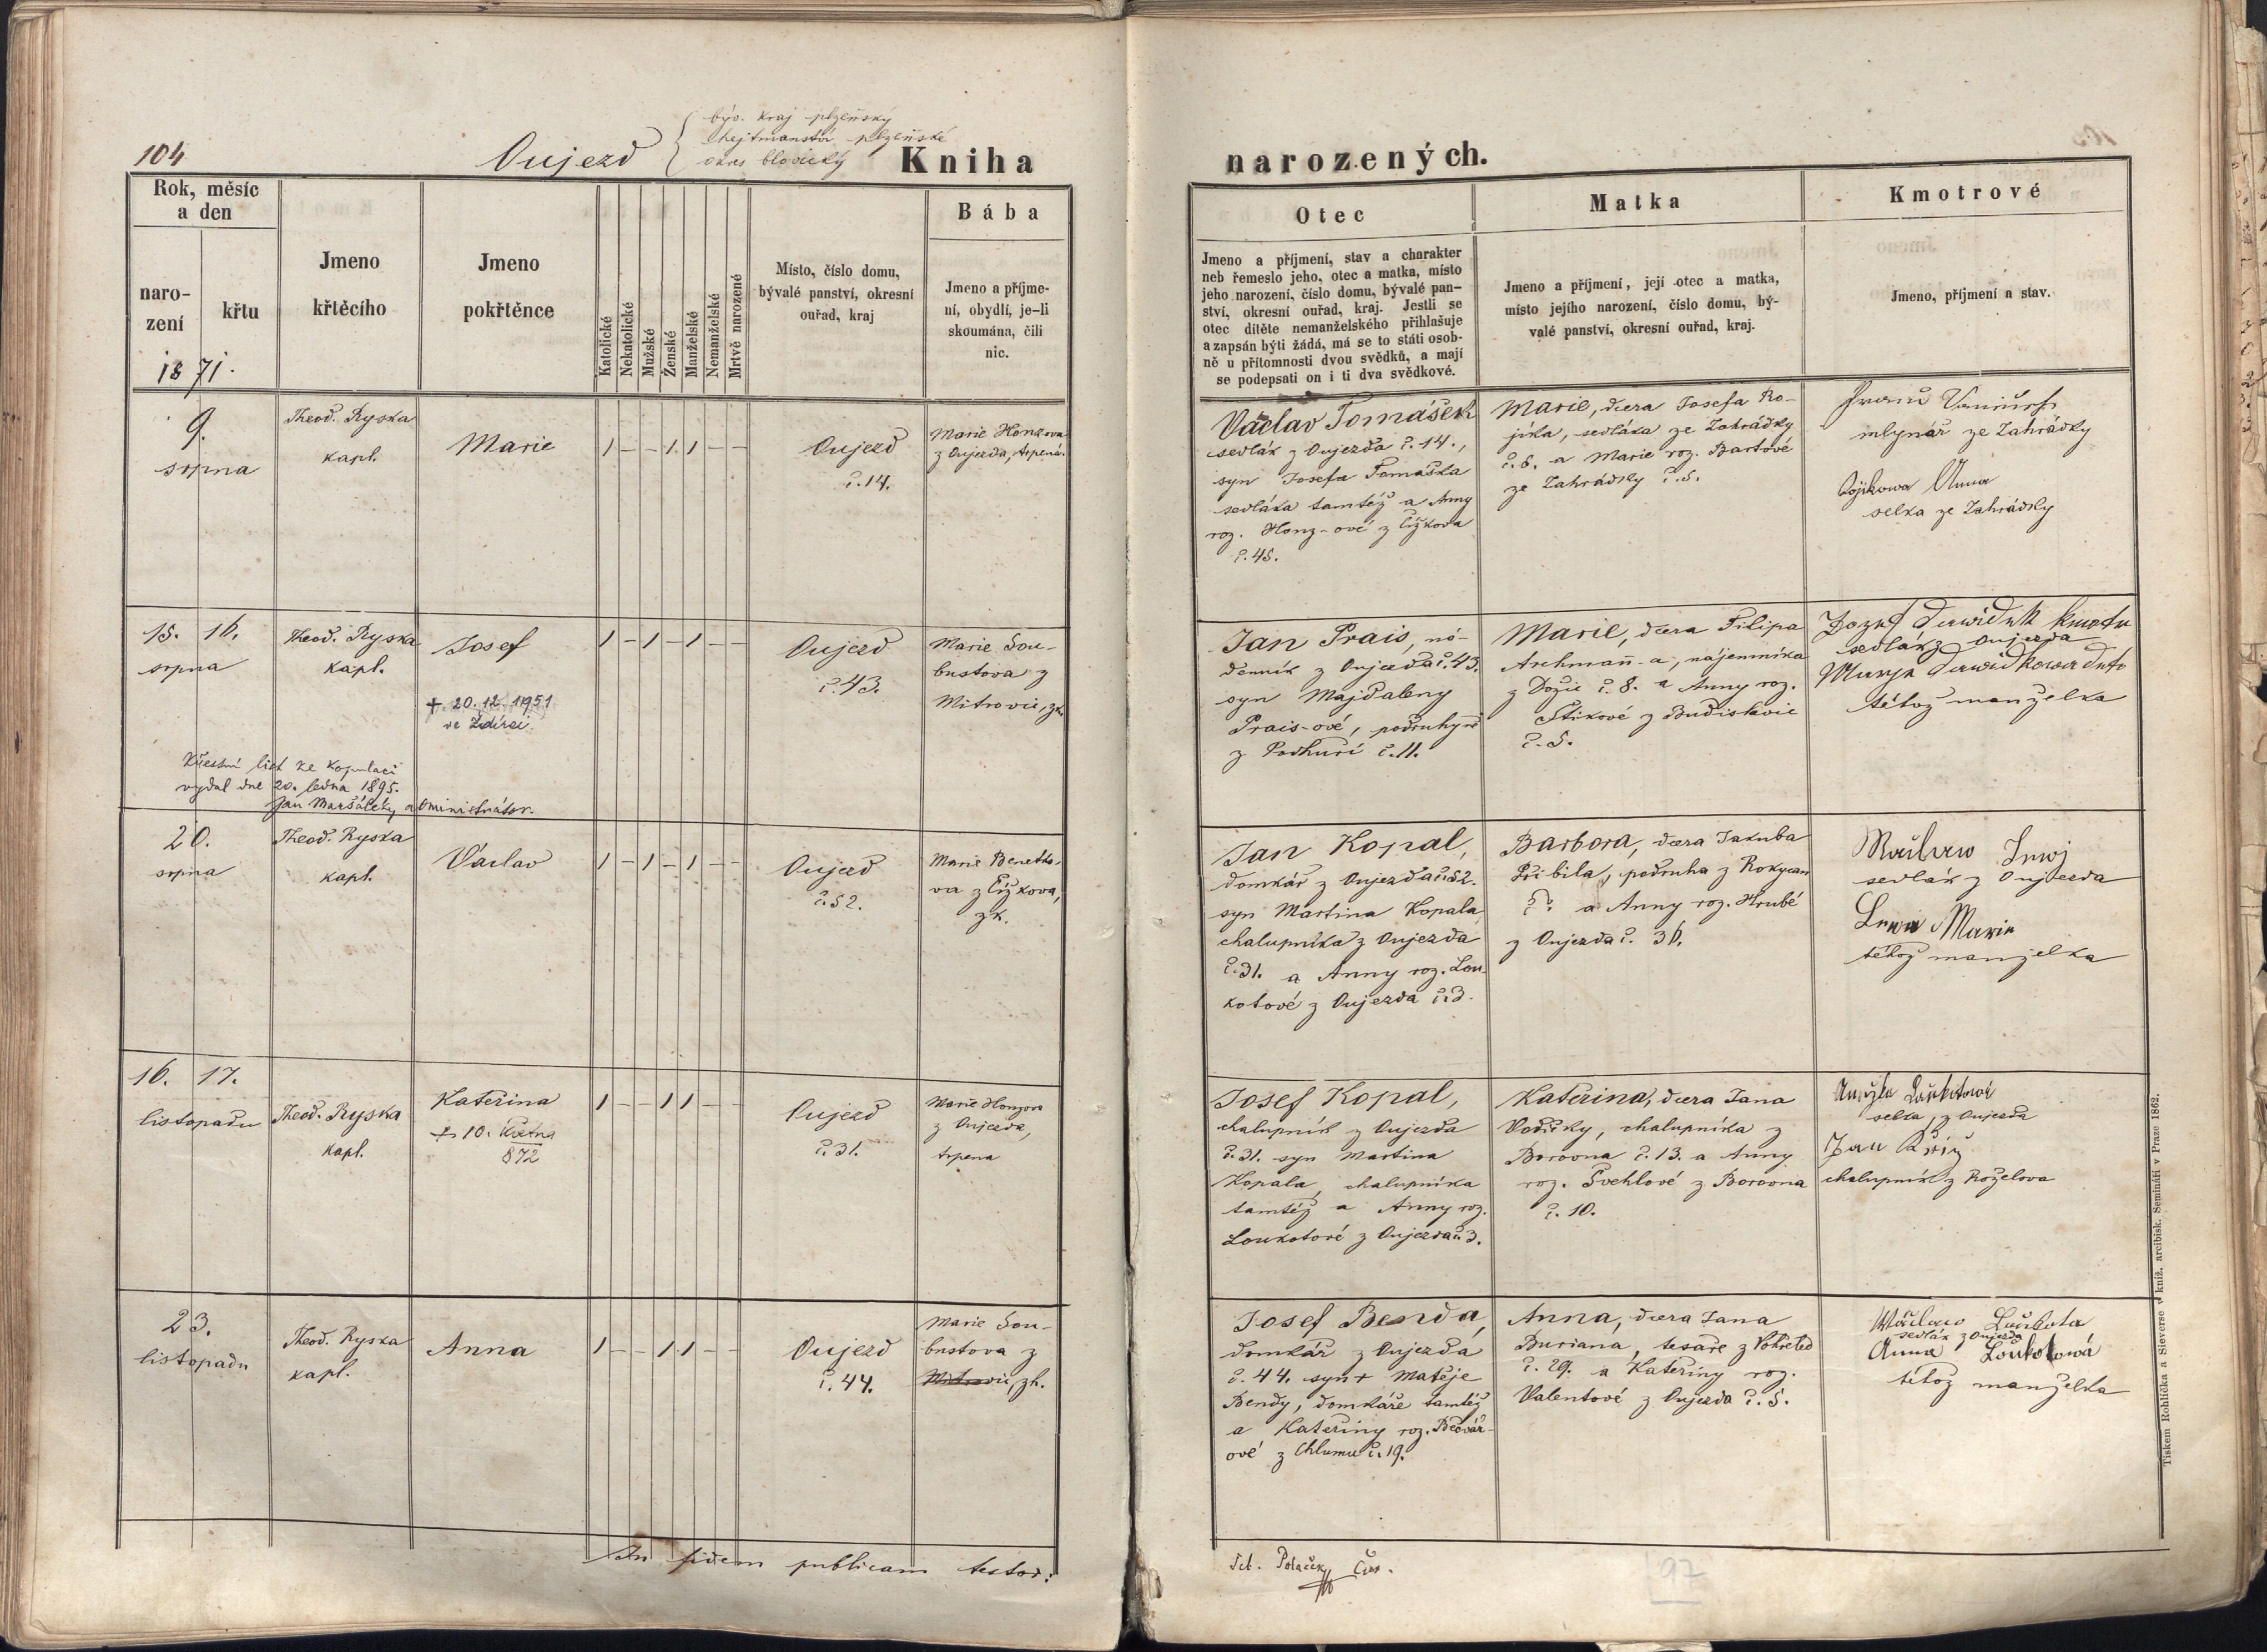 104
Oujezd
býv. kraj plzeňský
hejtmanství plzeňské
okres blovický
Kniha
narozených.
Rok, měsíc
a den
naro-
zení
křtu
1871.
Jmeno
křtěcího
Jmeno
pokřtěnce
Katolické
Nekatolické
Mužské
Ženské
Manželské
Nemanželské
Mrtvě narozené
Místo, číslo domu,
bývalé panství, okresní
ouřad, kraj
Bába
Jmeno a příjme-
ní, obydlí, je-li
skoumána, čili
nic.
Otec
Jmeno a příjmení, stav a charakter
neb řemeslo jeho, otec a matka, místo
jeho narození, číslo domu, bývalé pan-
ství, okresní ouřad, kraj. Jestli se
otec dítěte nemanželského přihlašuje
a zapsán býti žádá, má se to státi osob-
ně u přítomnosti dvou svědků, a mají
se podepsati on i ti dva svědkové.
Matka
Jmeno a příjmení, její otec a matka,
místo jejího narození, číslo domu, bý-
valé panství, okresní ouřad, kraj.
Kmotrové
Jmeno, příjmení a stav.
9.
srpna
Theod. Ryska
kapl.
Marie
1 – – 1 1 – –
Oujezd
č. 14.
Marie Honzova
z Oujezda, trpená.
Václav Tomášek
sedlák z Oujezda č. 14.,
syn Josefa Tomáška
sedláka tamtéž a Anny
roz. Honz-ové z Čížkova
č. 45.
Marie, dcera Josefa Ro-
jíka, sedláka ze Zahrádky
č. 6. a Marie roz. Bartové
ze Zahrádky č. 5.
mlynář ze Zahrádky
Rojikowa Anna
selka ze Zahrádky
15. 16.
srpna
Theod. Ryska
kapl.
Josef
+ 20.12 1951
ve Ždírci
1 – 1 – 1 – –
Oujezd
č. 43.
Marie Sou-
bustova z
Mitrovic, zk.
Jan Prais, ná-
denník z Oujezda č. 43.
syn Majdaleny
Prais-ové, podruhyně
z Podhuří č. 11.
Marie, dcera Filipa
Archmañ-a, nájemníka
z Dožic č. 8. a Anny roz.
Štikové z Budislavic
č. 5.
sedlák z Oujezda
téhož manželka
Křestní list ke kopulaci
vydal dne 20. ledna 1895.
Jan Maršálský, administrátor.
20.
srpna
Theod. Ryska
kapl.
Václav
1 – 1 – 1 – –
Oujezd
č. 52.
Marie Benetko-
va z Čížkova,
zk.
Jan Kopal,
domkář z Oujezda č. 52.
syn Martina Kopala
chalupníka z Oujezda
č. 31. a Anny roz. Lou-
kotové z Oujezda č. 3.
Barbora, dcera Jakuba
Přibila, podruha z Rokycan
č? a Anny roz. Hrubé
z Oujezda č. 36.
sedlák z Oujezda
Marie
téhož manželka
16. 17.
listopadu
Theod. Ryska
kapl.
Kateřina
+ 10. Května
872
1 – – 1 1 – –
Oujezd
č. 31.
Marie Honzova
z Oujezda,
trpena
Josef Kopal,
chalupník z Oujezda
č. 31. syn Martina
Kopala, chalupníka
tamtéž a Anny roz.
Loukotové z Oujezda č. 3.
Kateřina, dcera Jana
Vodičky, chalupníka z
Borovna č. 13. a Anny
roz. Švehlové z Borovna
č. 10.
selka z Oujezda
Jan Kříž
chalupník z Roželova
23.
listopadu
Theod. Ryska
kapl.
Anna
1 – – 1 1 – –
Oujezd
č. 44.
Marie Sou-
bustova z
Mitrovic, zk.
Josef Benda,
domkář z Oujezda
č. 44. syn + Matěje
Bendy, domkáře tamtéž
a Kateřiny roz. Bečvář-
ové z Chlumu č. 19.
Anna, dcera Jana
Buriana, tesaře z Vohřeled
č. 29. a Kateřiny roz.
Valentové z Oujezda č. 5.
Wáclaw Laukota
sedlák z Oujezda
Anna Loukotowá
téhož manželka
In fidem publicam testor:
97
Tiskem Rohlíčka a Sieverse v kníž. arcibisk. Semináři v Praze 1862.